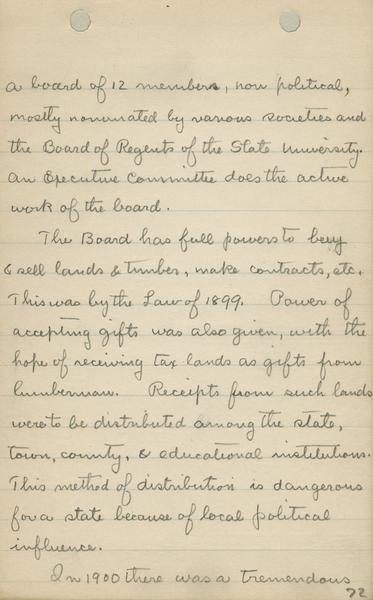 a board of 12 members, non political,
mostly nominated by various societies and
the Board of Regents of the State University.
An Executive Committee does the active
work of the board.
The Board has full powers to buy
& sell lands & timber, make contracts, etc.
This was by the Law of 1899. Power of
accepting gifts was also given, with the
hope of receiving tax lands as gifts from
lumberman. Receipts from such lands
were to be distributed among the state,
town, county, & educational institutions.
This method of distribution is dangerous
for a state because of local political
influence.
In 1900 there was a tremendous
72